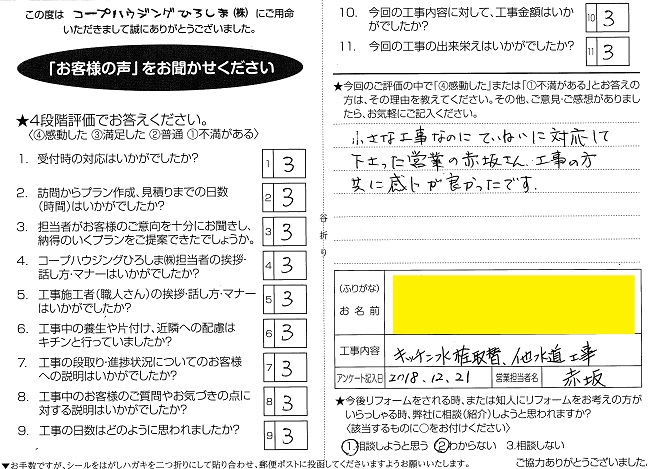 この度は コープハウジングひろしま(株) にご用命
いただきまして誠にありがとうございました。
「お客様の声」をお聞かせください
★4段階評価でお答えください。
〈④感動した ③満足した ②普通 ①不満がある〉
1. 受付時の対応はいかがでしたか?
1 3
2. 訪問からプラン作成、見積りまでの日数
(時間)はいかがでしたか?
2 3
3. 担当者がお客様のご意向を十分にお聞きし、
納得のいくプランをご提案できたでしょうか。
3 3
4. コープハウジングひろしま㈱担当者の挨拶・
話し方・マナーはいかがでしたか?
4 3
5. 工事施工者(職人さん)の挨拶・話し方・マナー
はいかがでしたか?
5 3
6. 工事中の養生や片付け、近隣への配慮は
キチンと行っていましたか?
6 3
7. 工事の段取り・進捗状況についてのお客様
への説明はいかがでしたか?
7 3
8. 工事中のお客様のご質問やお気づきの点に
対する説明はいかがでしたか?
8 3
9. 工事の日数はどのように思われましたか?
9 3
▼お手数ですが、シールをはがしハガキを二つ折りにして貼り合わせ、郵便ポストに投函してくださいますようお願いいたします。
谷折り
10. 今回の工事内容に対して、工事金額はいか
がでしたか?
10 3
11. 今回の工事の出来栄えはいかがでしたか?
11 3
★今回のご評価の中で「④感動した」または「①不満がある」とお答え
の方は、その理由を教えてください。その他、ご意見・ご感想がありまし
たら、お気軽にご記入ください。
小さな工事なのに ていねいに対応して
下さった営業の赤坂さん、工事の方
共に感じが良かったです.
(ふりがな)
お名前
工事内容
キッチン水栓取替、他水道工事
アンケート記入日
2018.12.21
営業担当者名
赤坂
★今後リフォームをされる時、または知人にリフォームをお考えの方が
いらっしゃる時、弊社に相談(紹介)しようと思われますか?
〈該当するものに○をお付けください〉
1.相談しようと思う 2.わからない 3.相談しない
ご協力ありがとうございました。